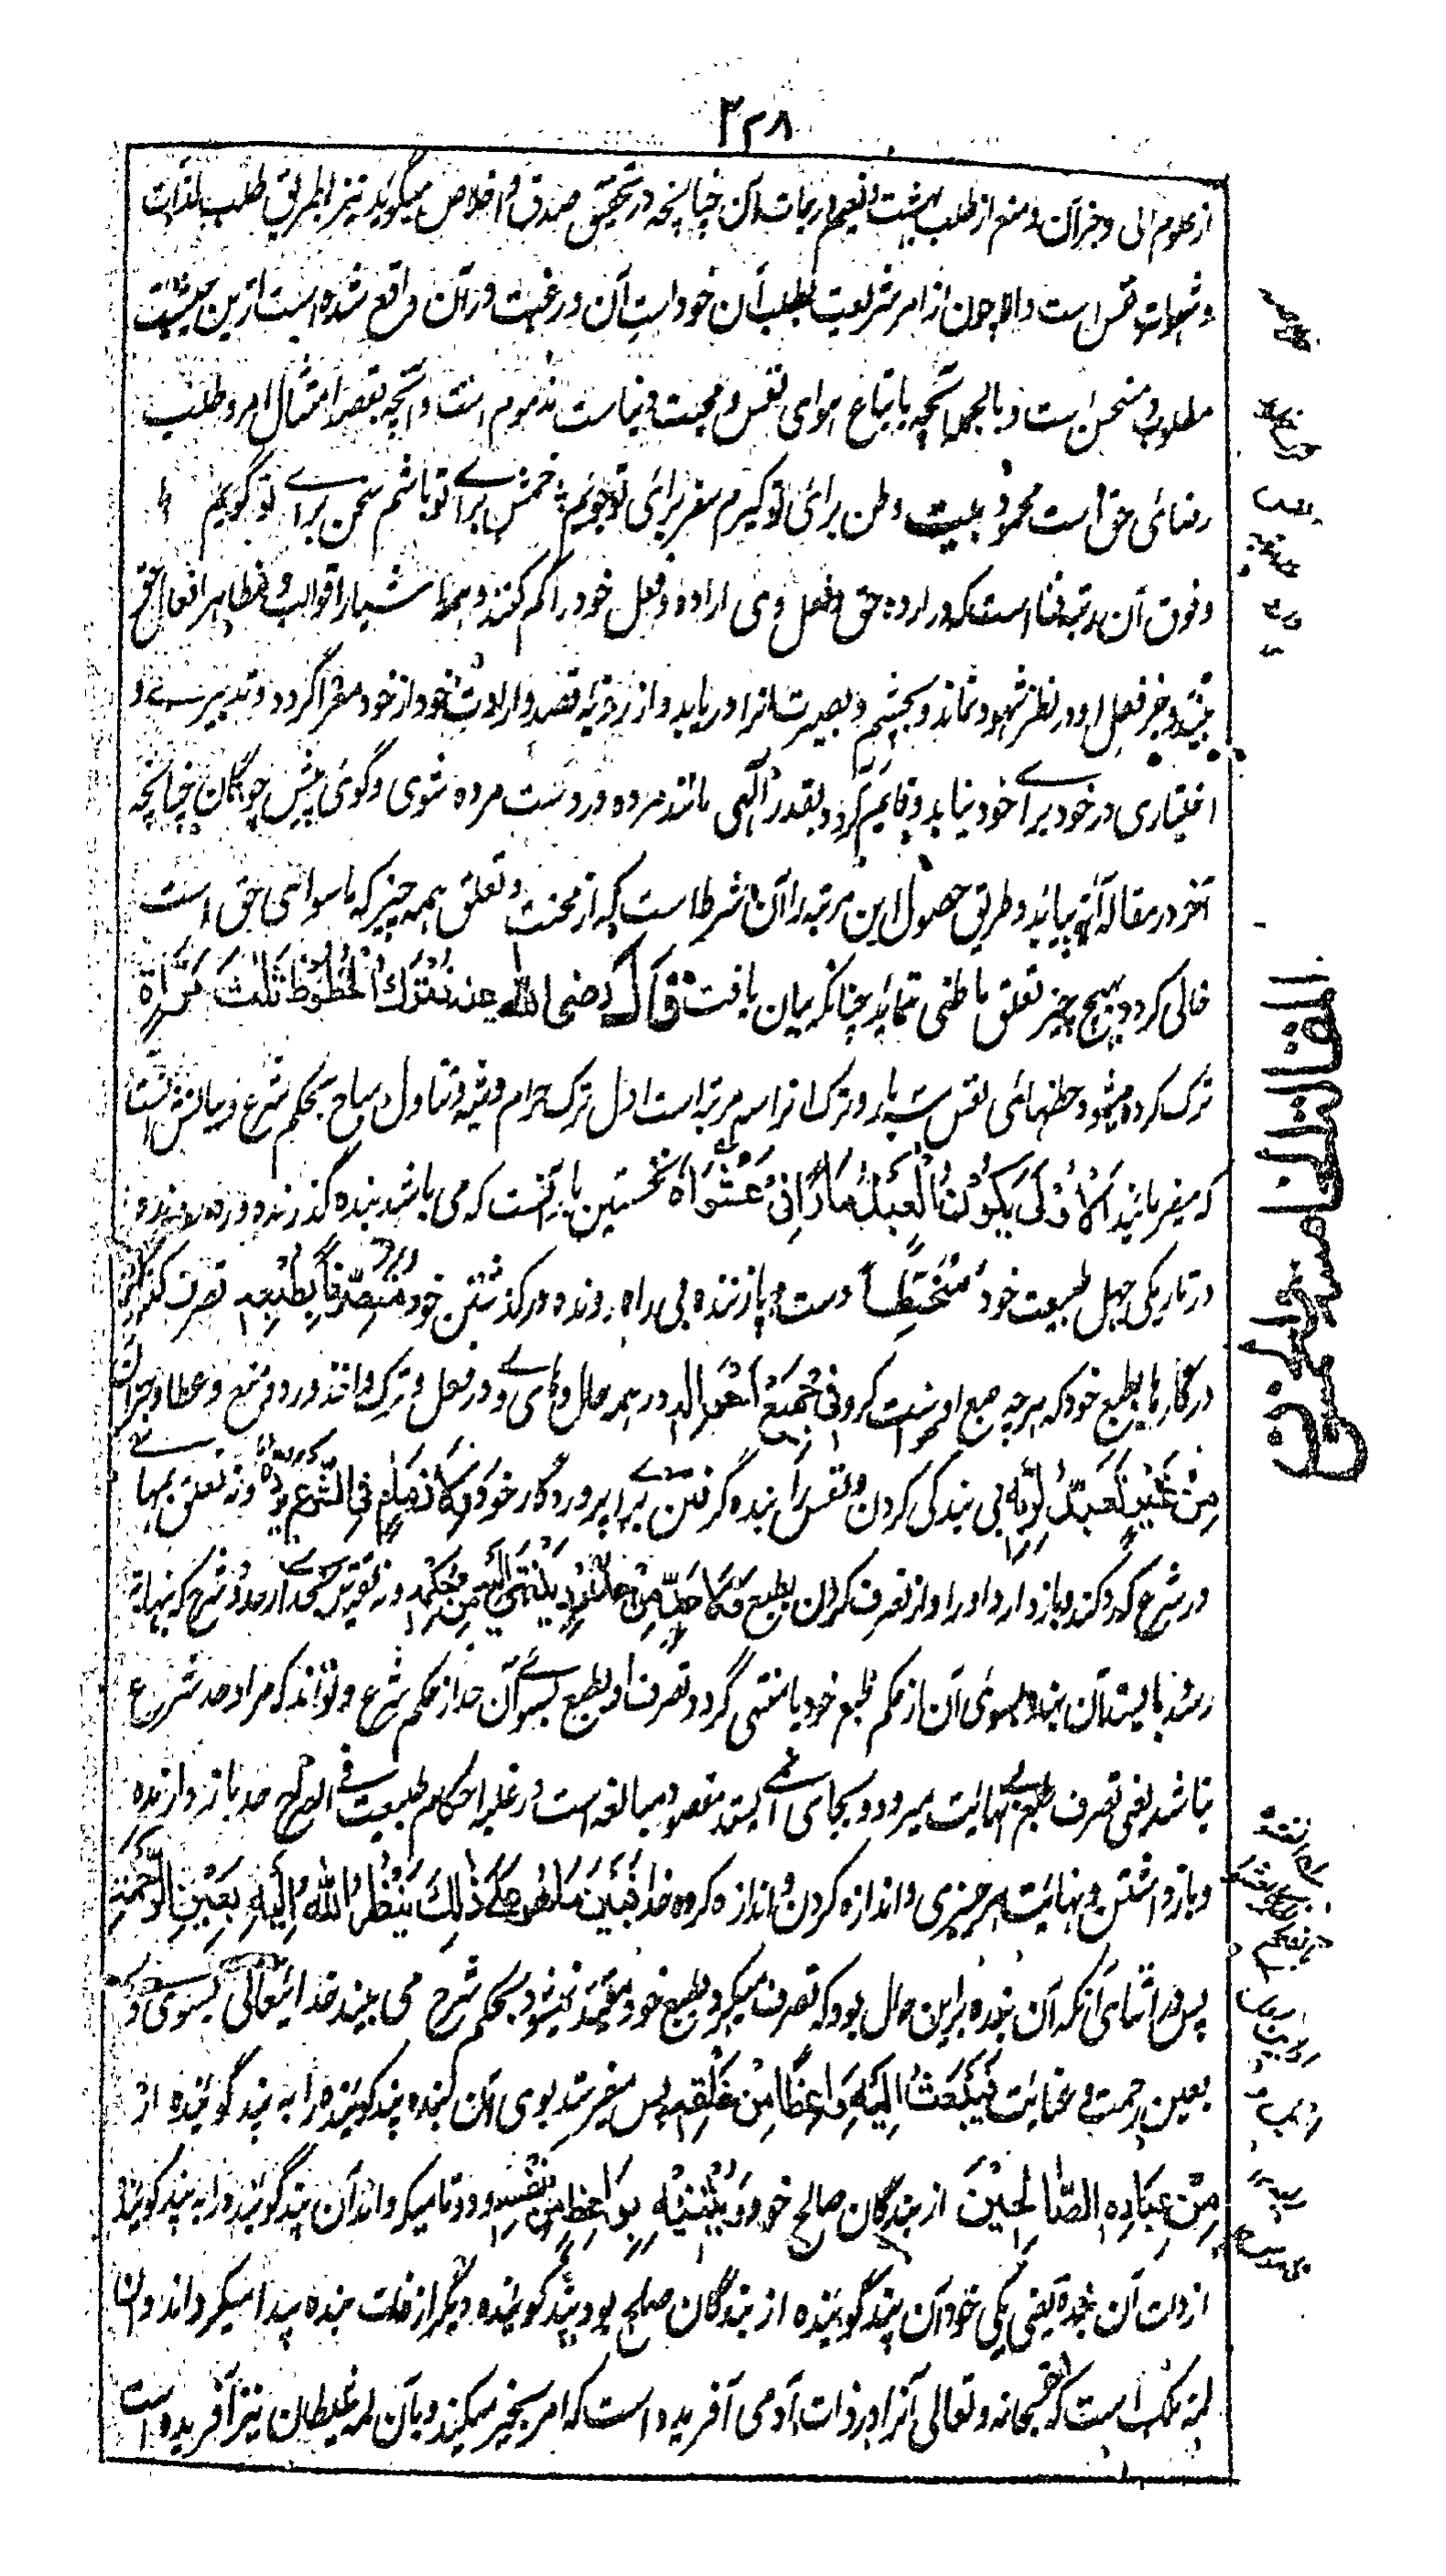 ۳۲۸
از علوم الی وجزآن ومنع از طلب بهشت ونعیم درجات آن چنانچه در تحقیق صدق و اخلاص میگوید نیز بطریق طلب لذات
وشهوات نفس است والا چون از امر شریعت بطلب آن خواست آن ورغبت در آن واقع شده است ازین حیثیت
مطلوب و مستحسن است وبالجمله آنچه باتباع هوای نفس و محبت دنیاست مذموم است وآنچه بقصد امتثال امر وطلب
رضای حق است محمود بیت وطن برای تو گیرم سفر برای تو جویم خمش برای تو باشم سخن برای تو گویم
وفوق آن مرتبه فنا است که در اراده حق وفعل وی اراده وفعل خود را گم کند وهمه اشیا را قوالب و مظاهر افعال حق
بیند وجز فعل او در نظر شهود نماند و بچشم و بصیرت آنرا دریابد واز رویه قصد وارادت خود از خود مبرا گردد و تدبیری و
اختیاری در خود برای خود نیابد وقایم گردد بقدر الهی مانند مرده در دست مرده شوی وگوی پیش چوگان چنانچه
آخر در مقاله آتیه بیاید وطریق حصول این مرتبه را آن شرط است که از محنت و تعلق همه چیز که ماسوای حق است
خالی گردد وبهیچ چیز تعلق باطنی نماید چنانکه بیان یافت قَالَ رَضی الله عنه تُتْرَكُ الْحُظُوْظُ ثَلٰثَ مَرَّاةٍ
ترک کرده میشود حظهای نفس سه بار وترک آنرا سه مرتبه است اول ترک حرام وشبه وتناول مباح بحکم شرع وبیانش اینست
که میفرمایند اَلْاُوْلٰی یَکُوْنُ الْعَبْدُ مَارًّا فِیْ عَشْوَاهُ نخستین بار آنست که می باشد بنده گذرنده ورونده
در تاریکی جهل طبیعت خود مُتَخَبِّطًا دست وپا زننده بی راه رونده در گذشتن خود مُتَصَرِّفًا بِطَبْعِهٖ تصرف کننده
در کارها بطبع خود که هرچه طبع او خواست کرد فِی جَمِیْعِ اَحْوَالِه در همه حال های وی ودر فعل وترک واخذ ورد ومنع وعطا وجز آن
مِنْ غَیْرِ تَعَبُّدٍ لِرَبِّهٖ بی بندگی کردن ونفس را بنده گرفتن برای پروردگار خود وَلَا زِمَامٍ فِی الشَّرْعِ یَرُدُّهُ ونه تعلق بمهاری
در شرع که رد کند وباز دارد او را از تصرف کردن بطبع وَلَا حَدٍّ مِنْ حُدُوْدِهٖ یَنْتَهِیْ اِلَیْهِ مِنْ حُکْمِهٖ ونه تقید بحدی از حدود شرع که بنهایة
رسد بایستد آن بنده بسوی آن از حکم طبع خود یا منتهی گردد تصرف او بطبع بسوی آن حد از حکم شرع وتواند که مراد حد شرع
نباشد یعنی تصرف طبع بی نهایت میرود وبجای نمی ایستد مقصود مبالغه است در غلبه احکام طبیعت فی الصراح حد باز دارنده
وباز داشتن ونهایت هر چیزی واندازه کردن واندازه کرده خدا فَبَیْنَمَا هُوَ عَلٰی ذٰلِكَ یَنْظُرُ اللهُ اِلَیْهِ بِعَیْنِ الرَّحْمَةِ
پس در اثنای آنکه آن بنده برین حال بود که تصرف میکرد بطبع خود ومقید نمیشود بحکم شرع می بیند خدا یتعالی بسوی وی
بعین رحمت و عنایت فَیَبْعَثُ اِلَیْهِ وَاعِظًا مِنْ خَلْقِهٖ پس میفرستد بسوی آن بنده پند گوینده را به پند گوینده از
مِنْ عِبَادِهِ الصَّالِحِیْنَ از بندگان صالح خود وَیُثْنِیْهِ بِوَاعِظٍ مِنْ نَفْسِهٖ ودوتا میگرداند آن پند گوینده را به پند گوینده
از ذات آن بنده یعنی یکی خود آن پند گوینده از بندگان صالح بود پند گوینده دیگر از ذات بنده پیدا میگرداند وآن
لمه ملک است که حق سبحانه وتعالی آنرا در ذات آدمی آفریده است که امر بخیر میکند وبآن لمه شیطان نیز آفریده است
المقالة الخامسة والخمسون